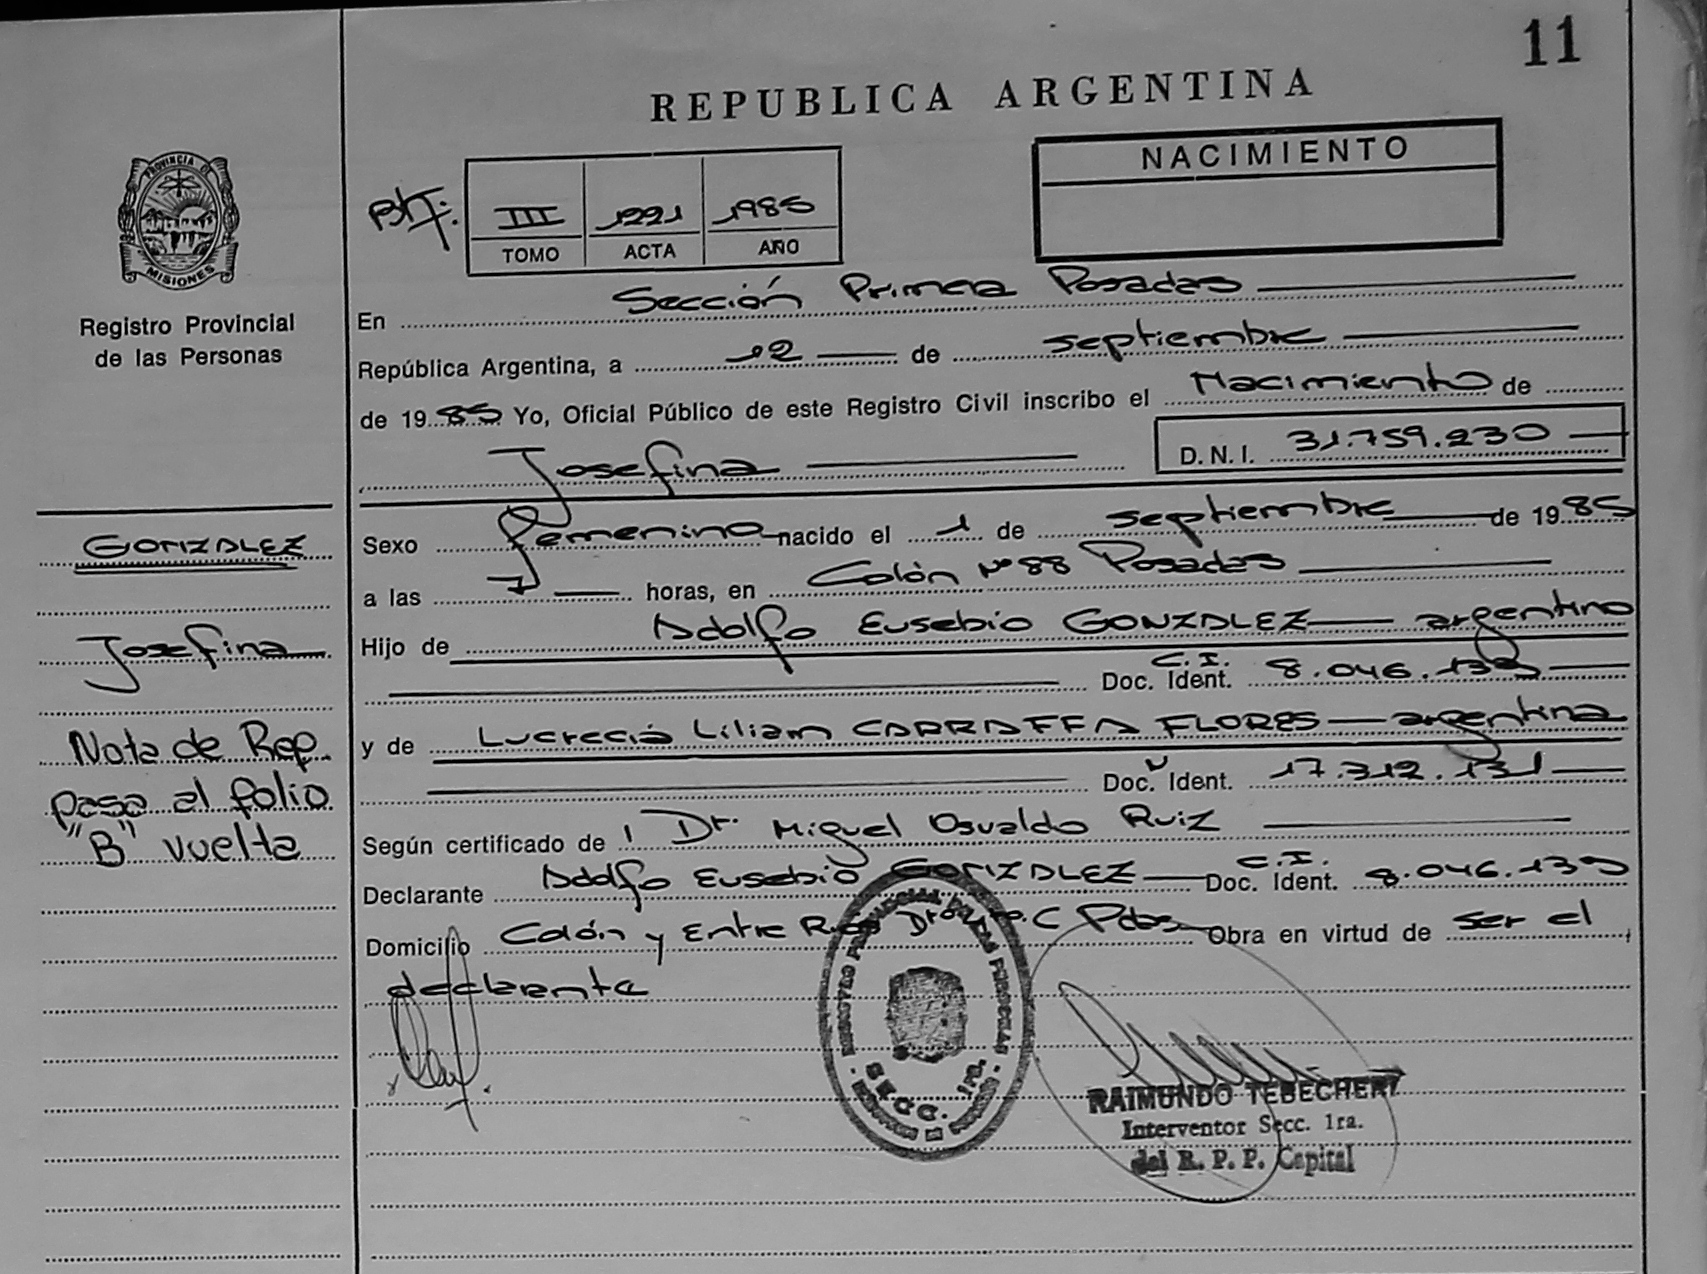 11
REPUBLICA ARGENTINA
NACIMIENTO
III 1221 1985
TOMO ACTA AÑO
PROVINCIA DE
MISIONES
Registro Provincial
de las Personas
En Sección Primera Posadas
República Argentina, a 12 de septiembre
de 1985 Yo, Oficial Público de este Registro Civil inscribo el Nacimiento de
Josefina
D. N. I. 31.759.230
GONZALEZ
Josefina
Nota de Rep.
pasa al folio
"B" vuelta
Sexo femenino nacido el 1 de septiembre de 1985
a las 7 horas, en Colón Nº 88 Posadas
Hijo de Adolfo Eusebio GONZALEZ argentino
C.I.
Doc. Ident. 8.046.139
y de Lucrecia Liliam CARRAFFA FLORES argentina
Doc. Ident. 17.312.131
Según certificado de Dr. Miguel Osvaldo Ruiz
Declarante Adolfo Eusebio GONZALEZ C.I. Doc. Ident. 8.046.139
Domicilio Colón y Entre Rios C Pdas Obra en virtud de ser el
declarante
SECC. 1ra.
RAIMUNDO TEBECHERI
Interventor Secc. 1ra.
del R. P. P. Capital